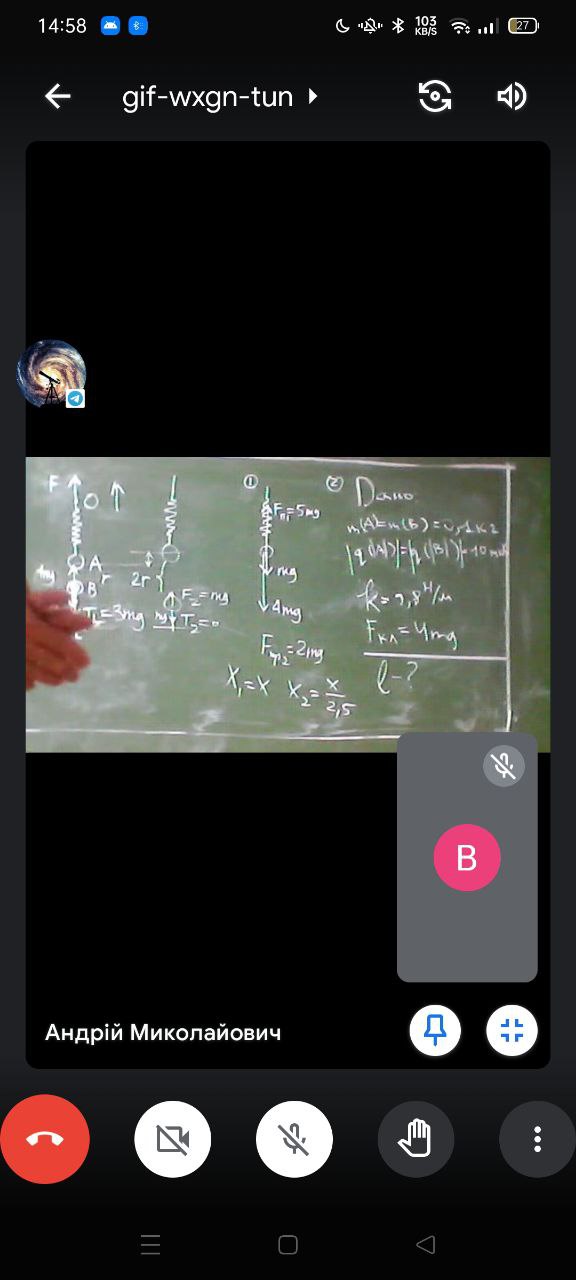 14:58
103
KB/S
27
gif-wxgn-tun
F
A
r
B
T₁=3mg
2r
F₂=mg
T₂=0
①
Fп₁=5mg
mg
4mg
Fпр₂=2mg
X₁=X X₂=X/2,5
② Дано:
m(A)=m(B)=0,1кг
|q(A)|=|q(B)|=10
k=9,8 Н/м
Fкл=4mg
l-?
B
Андрій Миколайович